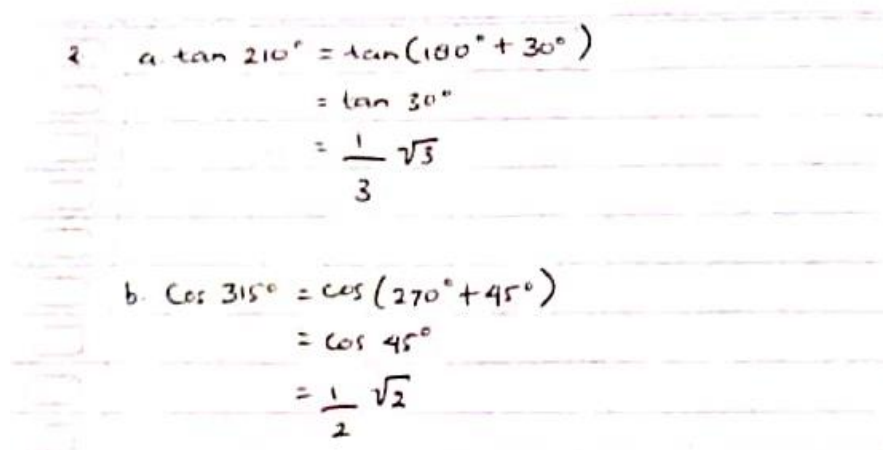 2 a. tan 210° = tan (180° + 30°)
= tan 30°
= 1/3 √3
b. Cos 315° = cos (270° + 45°)
= cos 45°
= 1/2 √2